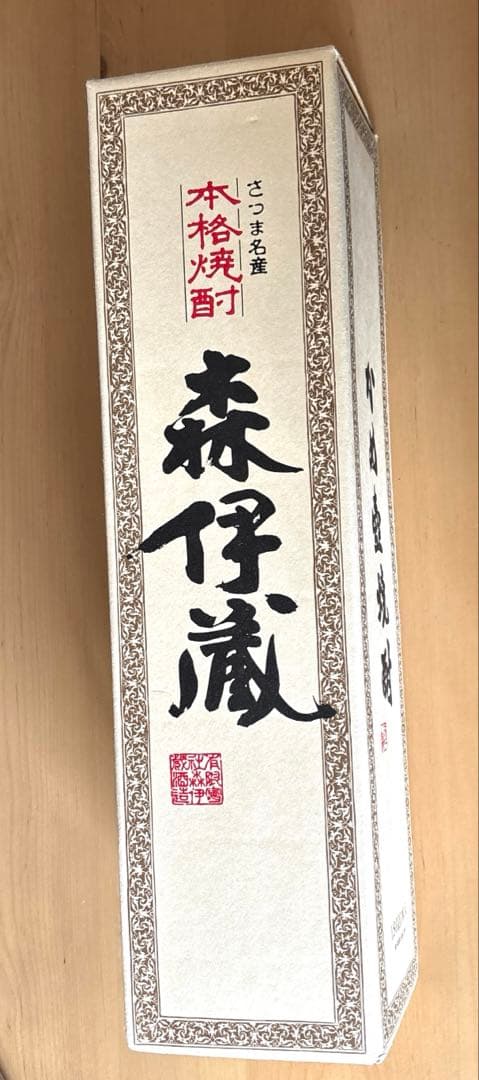 さつま名産
本格焼酎
森伊蔵
有限会社森伊蔵酒造
かめ壺焼酎